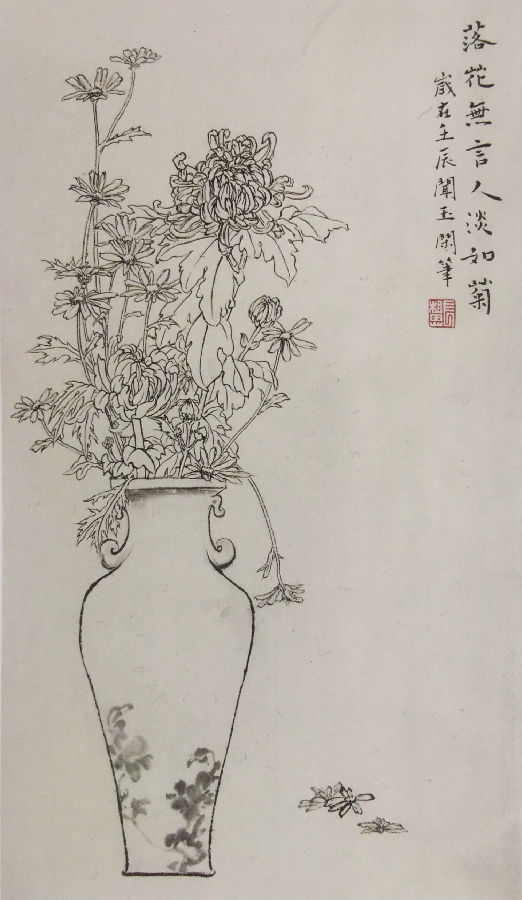 落花無言人淡如菊
歲在壬辰聞玉閑筆